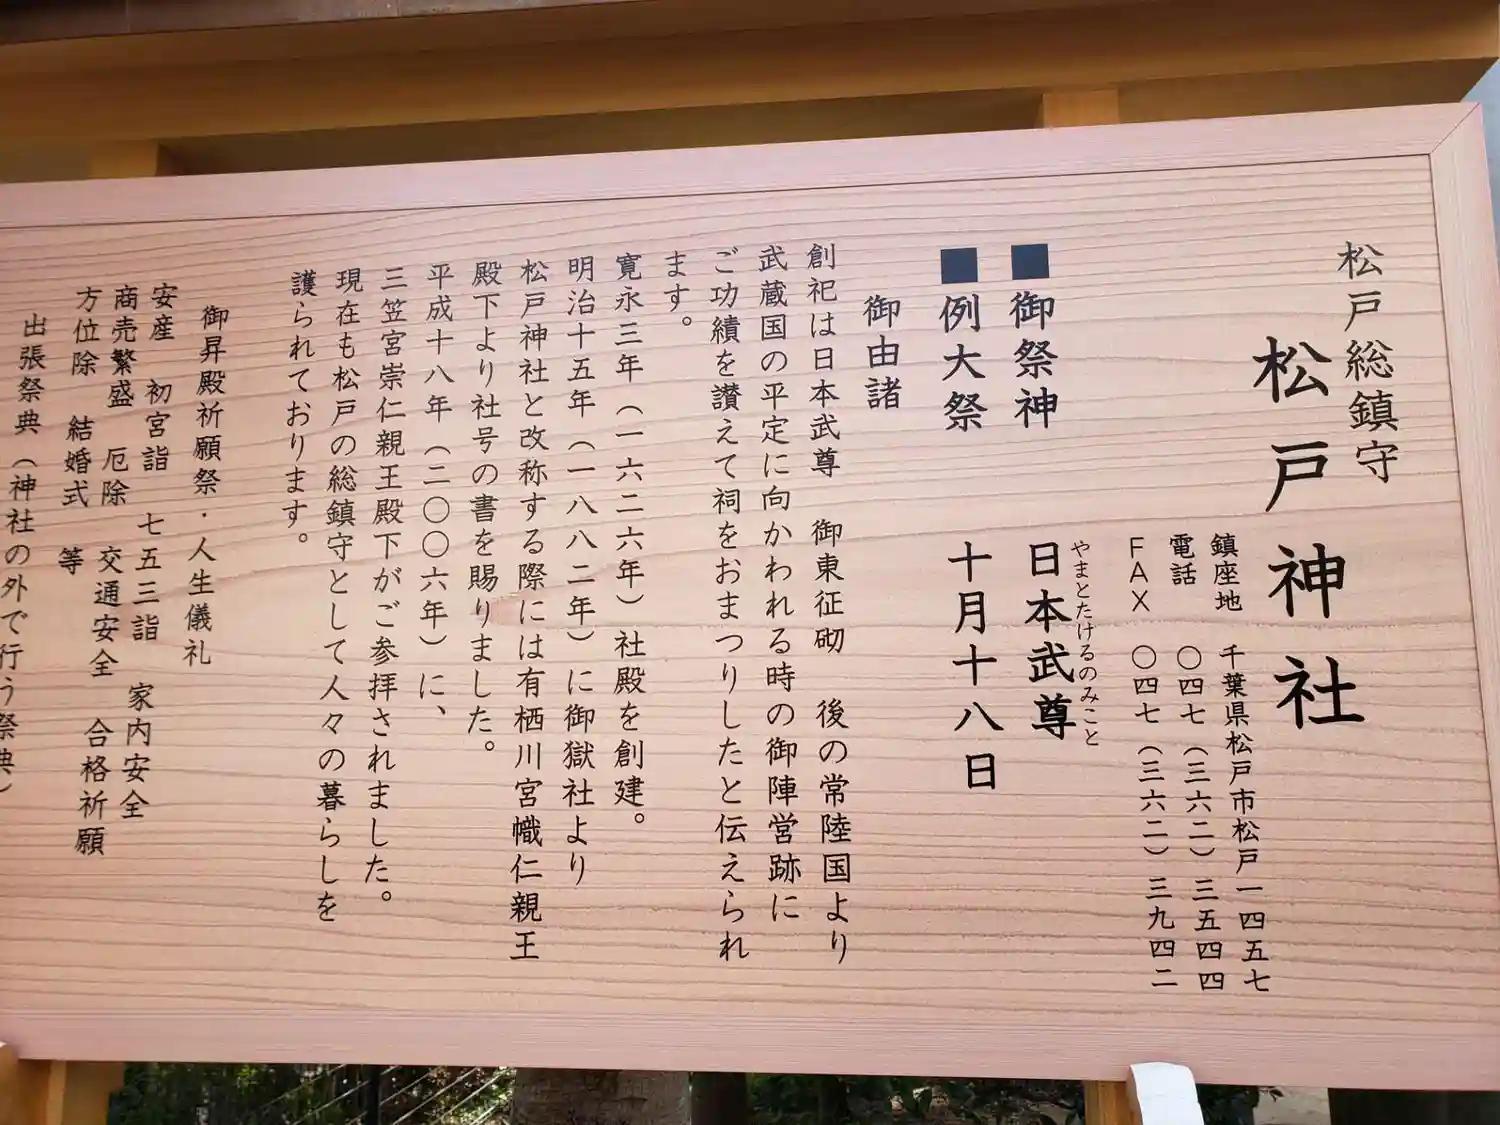 松戸総鎮守
松戸神社
鎮座地 千葉県松戸市松戸一四五七
電話 〇四七(三六二)三五四四
FAX 〇四七(三六二)三九四二
■御祭神 日本武尊
やまとたけるのみこと
■例大祭 十月十八日
御由諸
創祀は日本武尊 御東征砌 後の常陸国より
武蔵国の平定に向かわれる時の御陣営跡に
ご功績を讃えて祠をおまつりしたと伝えられ
ます。
寛永三年(一六二六年)社殿を創建。
明治十五年(一八八二年)に御獄社より
松戸神社と改称する際には有栖川宮幟仁親王
殿下より社号の書を賜りました。
平成十八年(二〇〇六年)に、
三笠宮崇仁親王殿下がご参拝されました。
現在も松戸の総鎮守として人々の暮らしを
護られております。
御昇殿祈願祭・人生儀礼
安産 初宮詣 七五三詣 家内安全
商売繁盛 厄除 交通安全 合格祈願
方位除 結婚式 等
出張祭典(神社の外で行う祭典)